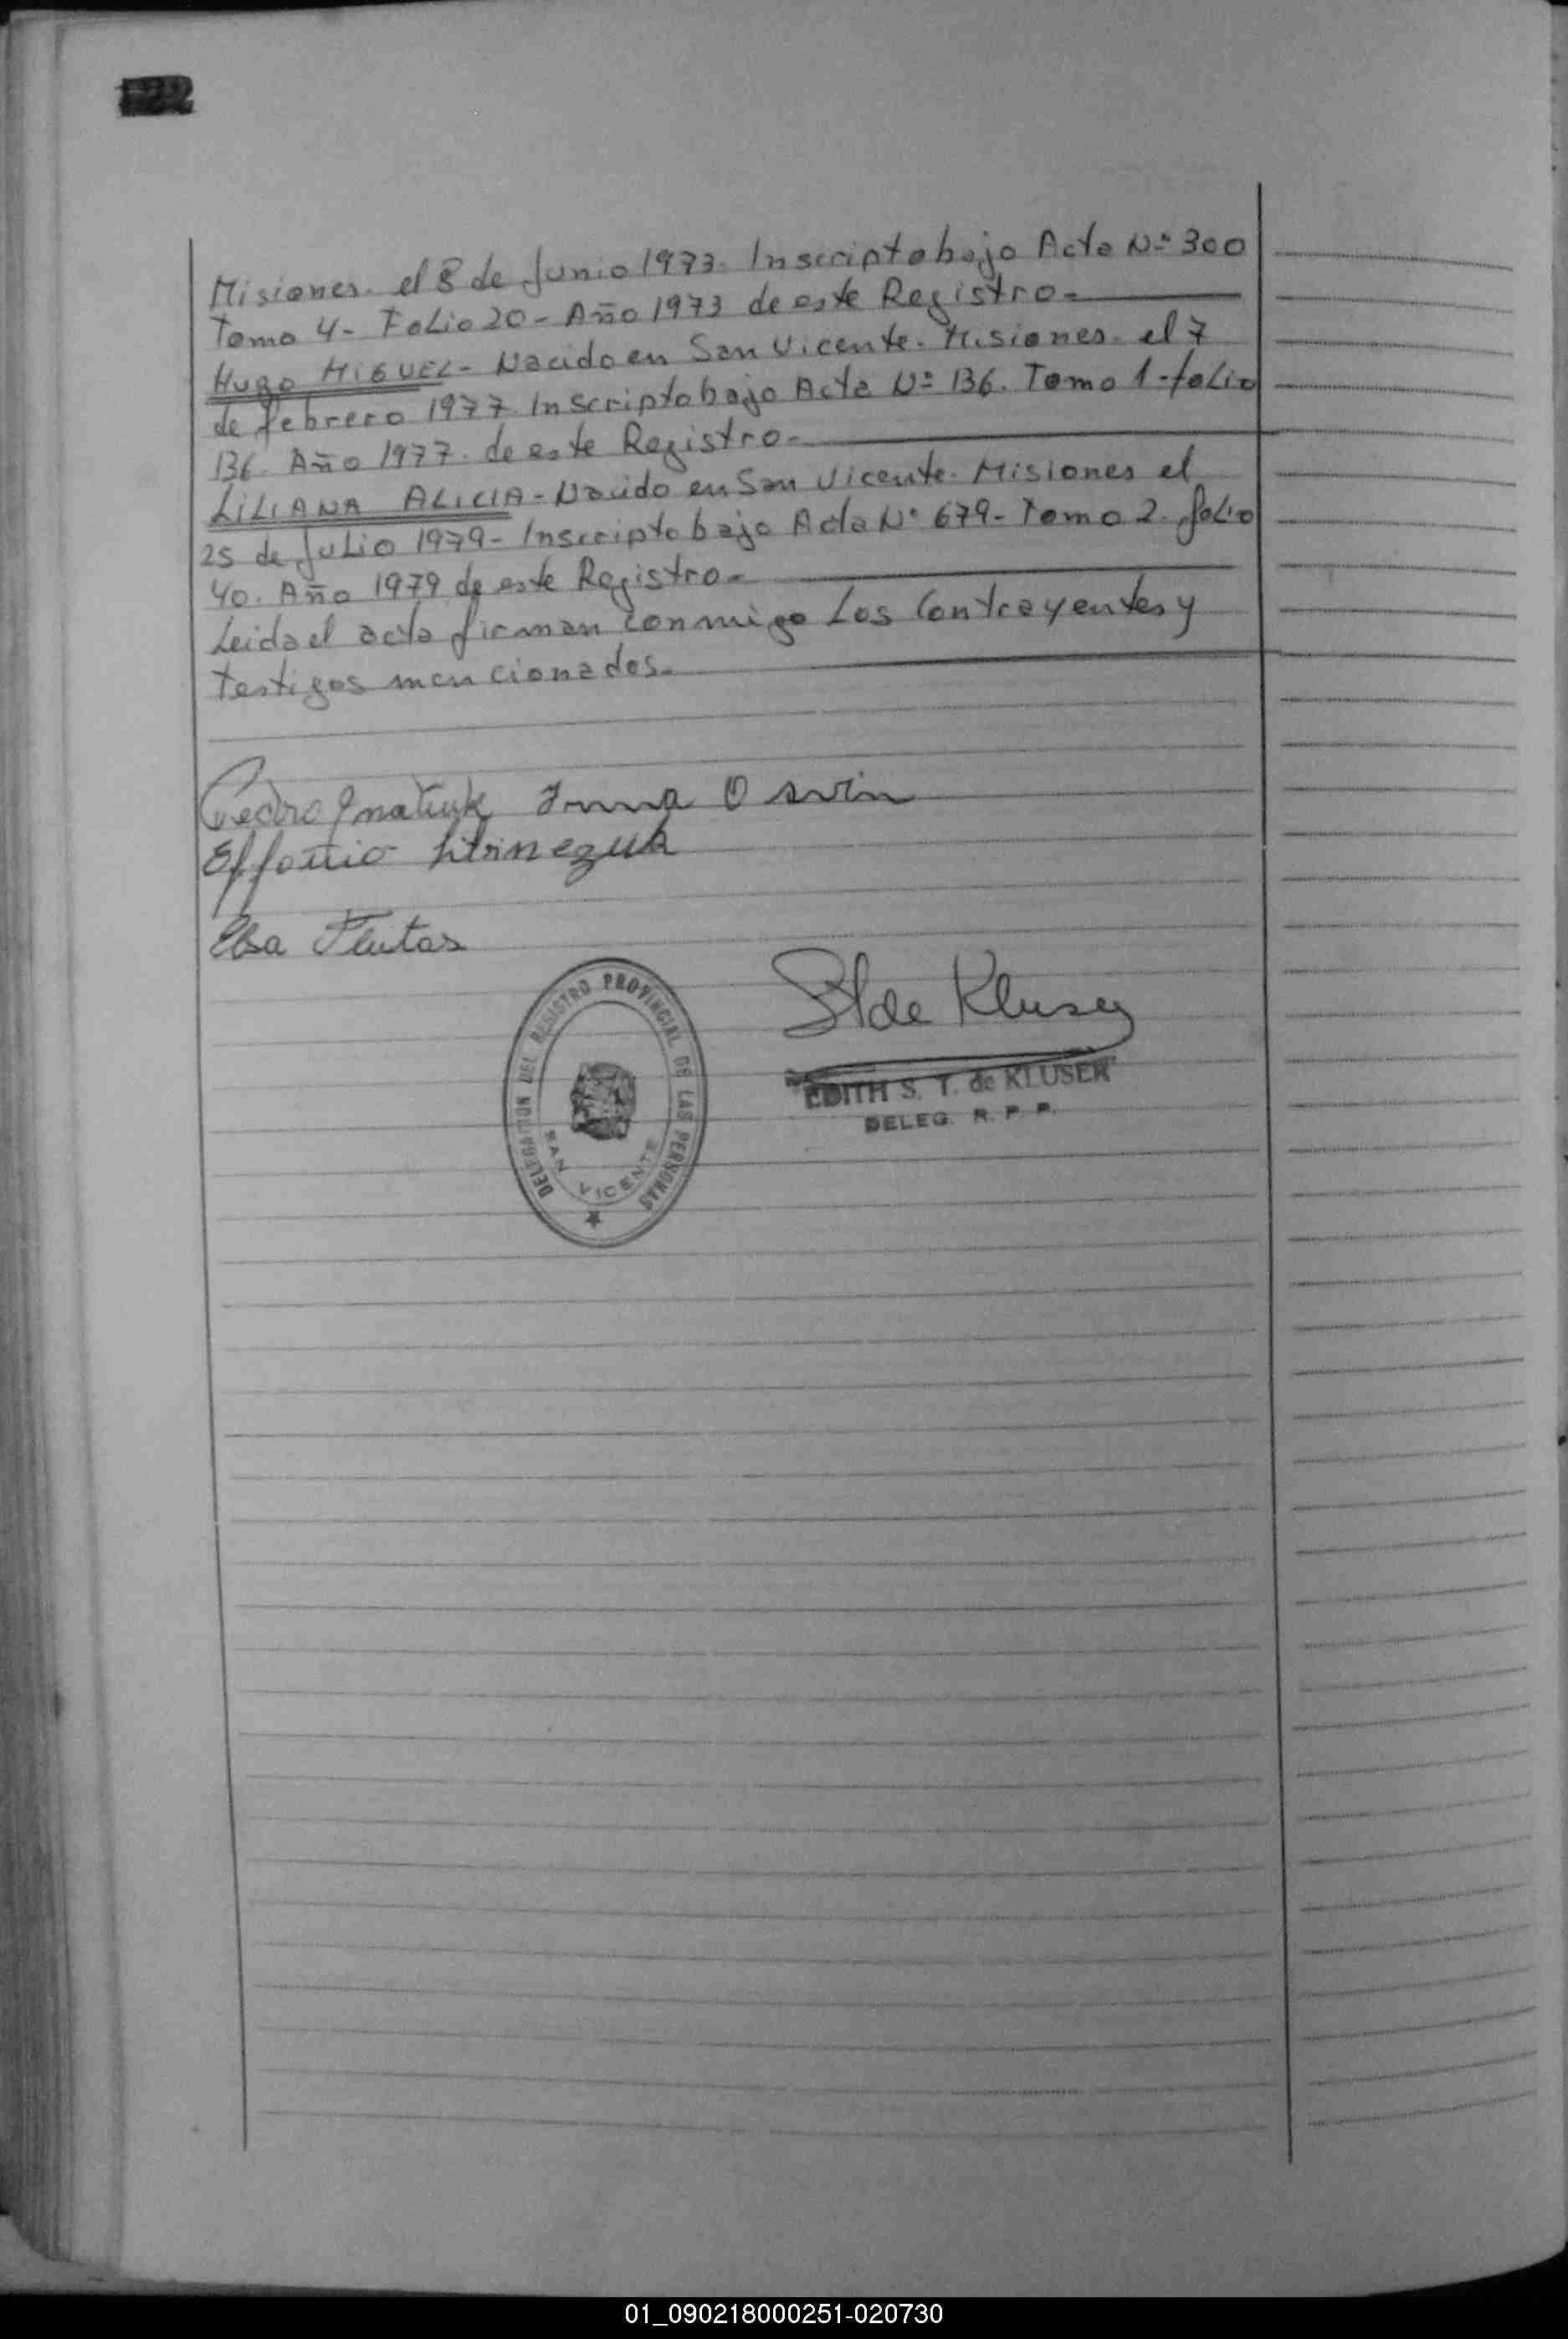 22
Misiones. el 8 de Junio 1973. Inscripto bajo Acta Nº 300
Tomo 4- Folio 20- Año 1973 de este Registro-
HUGO MIGUEL- Nacido en San Vicente. Misiones. el 7
de febrero 1977 Inscripto bajo Acta Nº 136. Tomo 1-folio
136. Año 1977. de este Registro-
LILIANA ALICIA- Nacido en San Vicente. Misiones el
25 de Julio 1979- Inscripto bajo Acta Nº 679- Tomo 2. folio
40. Año 1979 de este Registro-
Leida el acta firman conmigo Los Contrayentes y
testigos mencionados-
Pedro Ynatiuk Irma Osvin
Elsa
S T de Kluser
EDITH S. T. de KLUSER
DELEG. R. P. P.
DELEGACION DEL REGISTRO PROVINCIAL DE LAS PERSONAS
SAN VICENTE
01_090218000251-020730